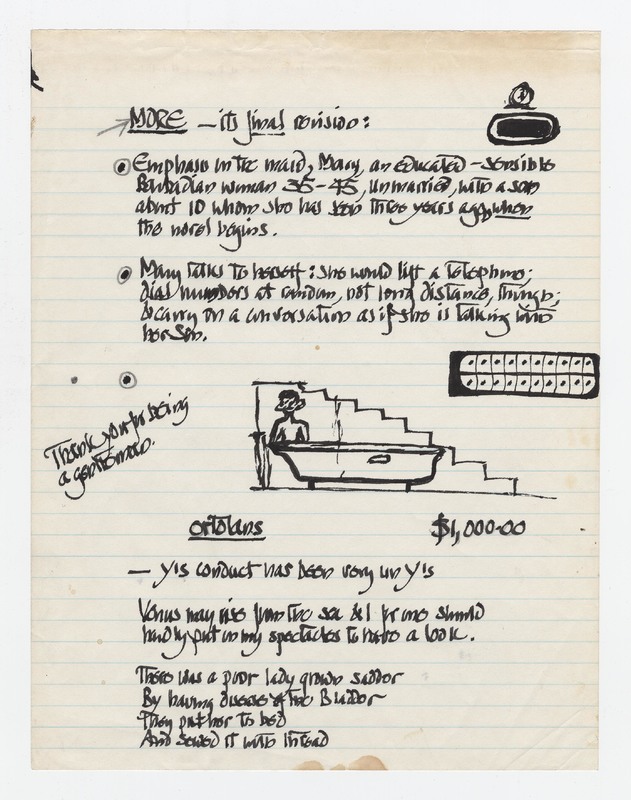 MORE — its final revision:
Emphasis on the maid, Mary, an educated - sensible
Barbadian woman 35-45, unmarried, with a son
about 10 whom she has seen three years ago, when
the novel begins.
Mary talks to herself: she would lift a telephone;
dial numbers at random, not long distance, things;
& carry on a conversation as if she is talking with
her son.
Thank you for being
a gentleman.
ortolans $1,000.00
— Y's conduct has been very un Y's
Venus may rise from the sea & I for one should
hardly put on my spectacles to have a look.
There was a poor lady grown sadder
By having disease of the Bladder
They put her to bed
And sewed it with thread